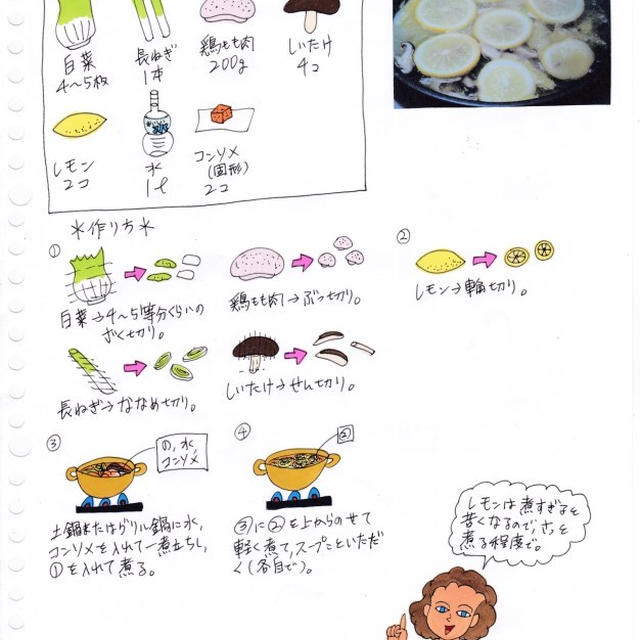 白菜
4〜5枚
長ねぎ
1本
鶏もも肉
200g
しいたけ
4コ
レモン
2コ
水
1ℓ
コンソメ
(固形)
2コ
*作り方*
①
白菜→4〜5等分くらいの
ざく切り。
鶏もも肉→ぶつ切り。
長ねぎ→ななめ切り。
しいたけ→せん切り。
②
レモン→輪切り。
③
の,水,
コンソメ
土鍋またはグリル鍋に水,
コンソメを入れて一煮立ちし,
①を入れて煮る。
④
②
③に②を上からのせて
軽く煮て,スープごといただ
く(各自で)。
レモンは煮すぎると
苦くなるので,さっと
煮る程度で。